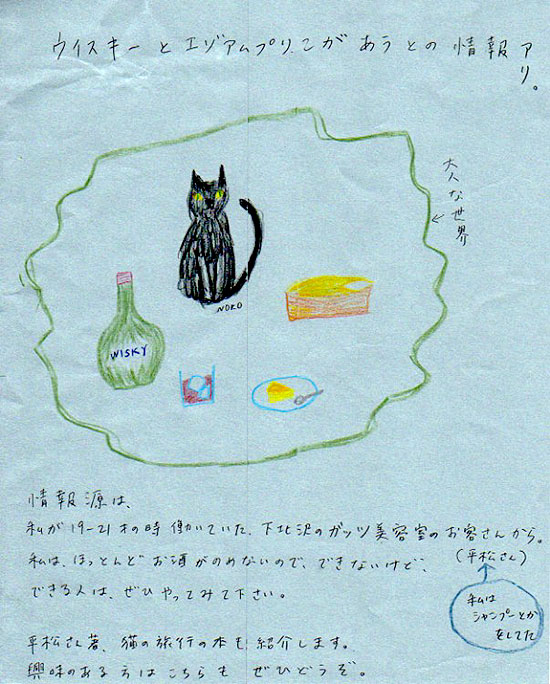 ウイスキーとエゾアムプリンがあうとの情報アリ。
大人な世界
NOKO
WISKY
情報源は、
私が19-21才の時働いていた、下北沢のガッツ美容室のお客さんから。
(平松さん)
私は、ほっとんどお酒がのめないので、できないけど、
できる人は、ぜひやってみて下さい。
私は
シャンプーとか
をしてた
平松さん著、猫の旅行の本も紹介します。
興味のある方はこちらも ぜひどうぞ。